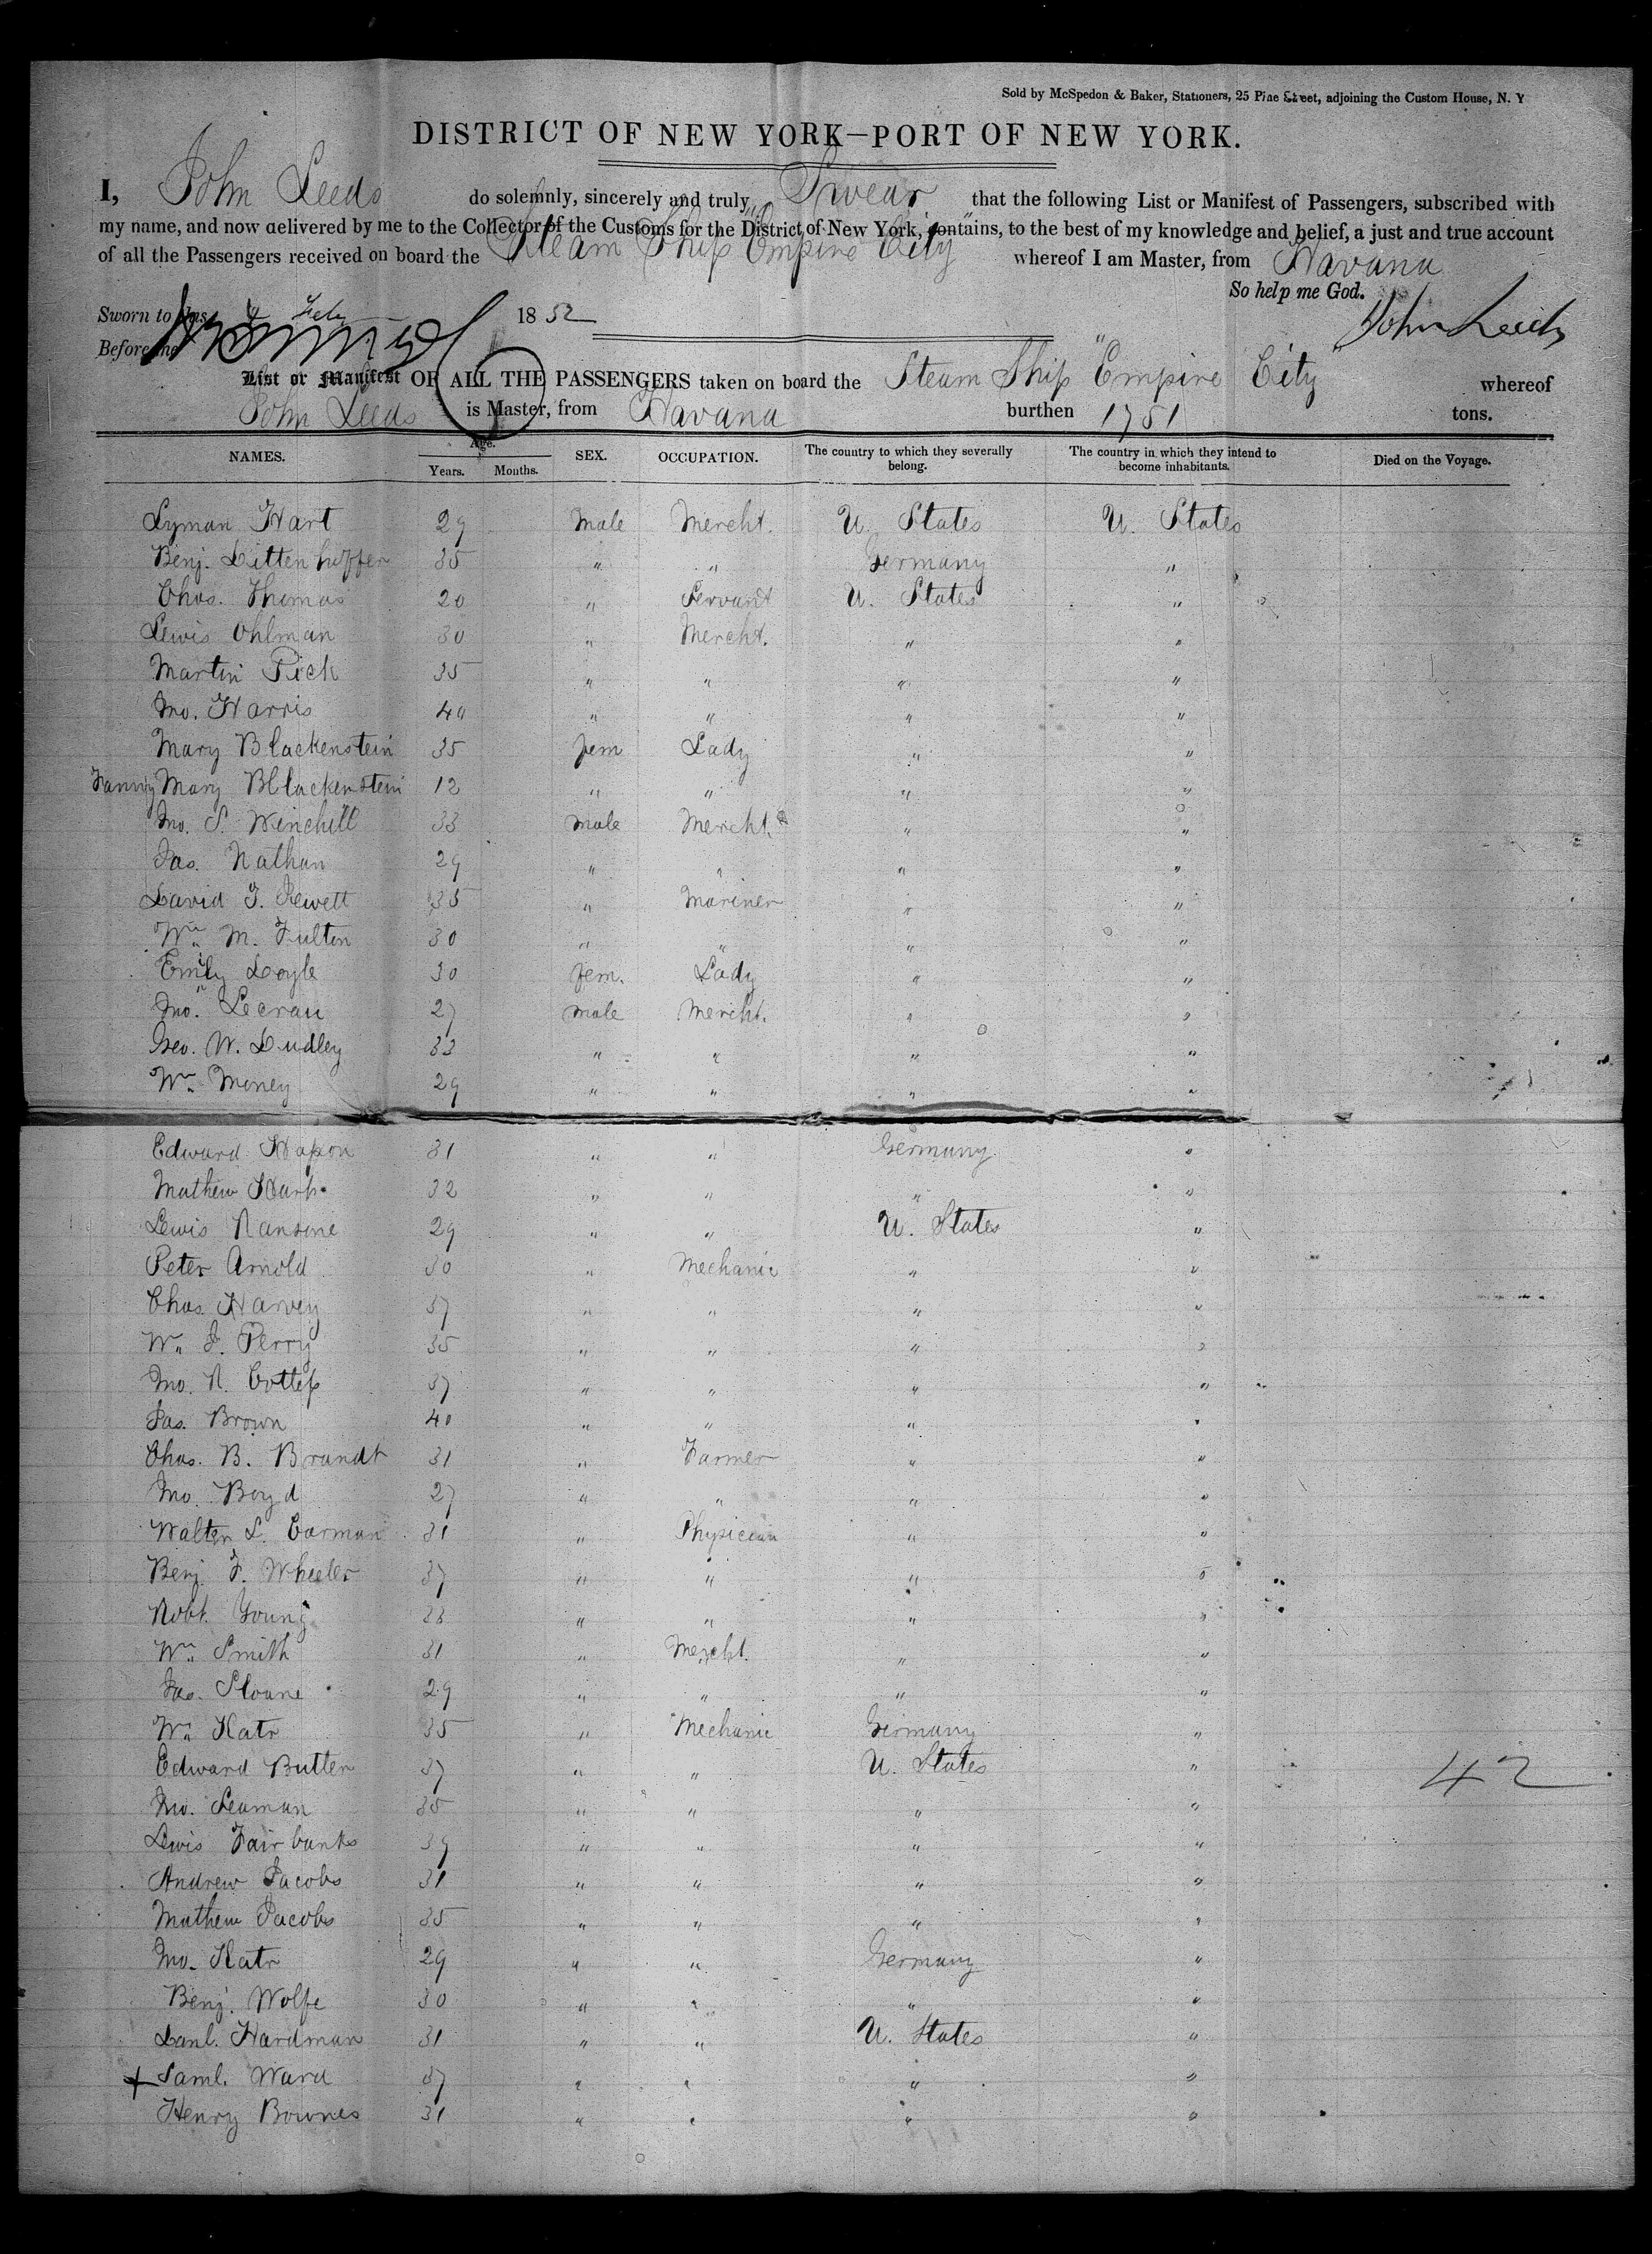 Sold by McSpedon & Baker, Stationers, 25 Pine Street, adjoining the Custom House, N. Y
DISTRICT OF NEW YORK—PORT OF NEW YORK.
I, John Leeds do solemnly, sincerely and truly Swear that the following List or Manifest of Passengers, subscribed with
my name, and now delivered by me to the Collector of the Customs for the District of New York, contains, to the best of my knowledge and belief, a just and true account
of all the Passengers received on board the Steam Ship "Empire City" whereof I am Master, from Havana
So help me God.
Sworn to this 4 Feby 1852 John Leeds
Before me
List or Manifest OF ALL THE PASSENGERS taken on board the Steam Ship "Empire City" whereof
John Leeds is Master, from Havana burthen 1751 tons.
NAMES. Age. Years. Months. SEX. OCCUPATION. The country to which they severally belong. The country in which they intend to become inhabitants. Died on the Voyage.
Lyman Hart 29 Male Mercht. U. States U. States
Benj. Littenhoffer 35 " " Germany "
Chas. Thomas 20 " Servant U. States "
Lewis Ohlman 30 " Mercht. " "
Martin Pick 35 " " " "
Jno. Harris 40 " " " "
Mary Blackenstein 35 Fem Lady " "
Fanny Mary Bllackenstein 12 " " " "
Jno. S. Winchill 33 Male Mercht. " "
Jas. Nathan 29 " " " "
David T. Jewett 35 " Mariner " "
Wm. M. Fulton 30 " " " "
Emily Doyle 30 Fem. Lady " "
Jno. Lecrau 27 Male Mercht. " "
Geo. W. Dudley 33 " " " "
Wm. Money 29 " " " "
Edward Hapon 31 " " Germany "
Mathew Harp 32 " " " "
Lewis Ransone 29 " " U. States "
Peter Arnold 30 " Mechanic " "
Chas. Harvey 37 " " " "
Wm. J. Perry 35 " " " "
Jno. R. 37 " " " "
Jas. Brown 40 " " " "
Chas. B. Brandt 31 " Farmer " "
Jno. Boyd 27 " " " "
Walter L. Carman 31 " Physician " "
Benj. F. Wheeler 37 " " " "
Robt. Young 33 " " " "
Wm. Smith 31 " Mercht. " "
Jas. Sloane 29 " " " "
Wm. Katr 35 " Mechanic Germany "
Edward Butter 37 " " U. States " 42
Jno. Seaman 35 " " " "
Lewis Fairbanks 39 " " " "
Andrew Jacobs 31 " " " "
Mathew Jacobs 35 " " " "
Jno. Katr 29 " " Germany "
Benj. Wolfe 30 " " " "
Danl. Hardman 31 " " U. States "
Saml. Ward 37 " " " "
Henry Bownes 31 " " " "